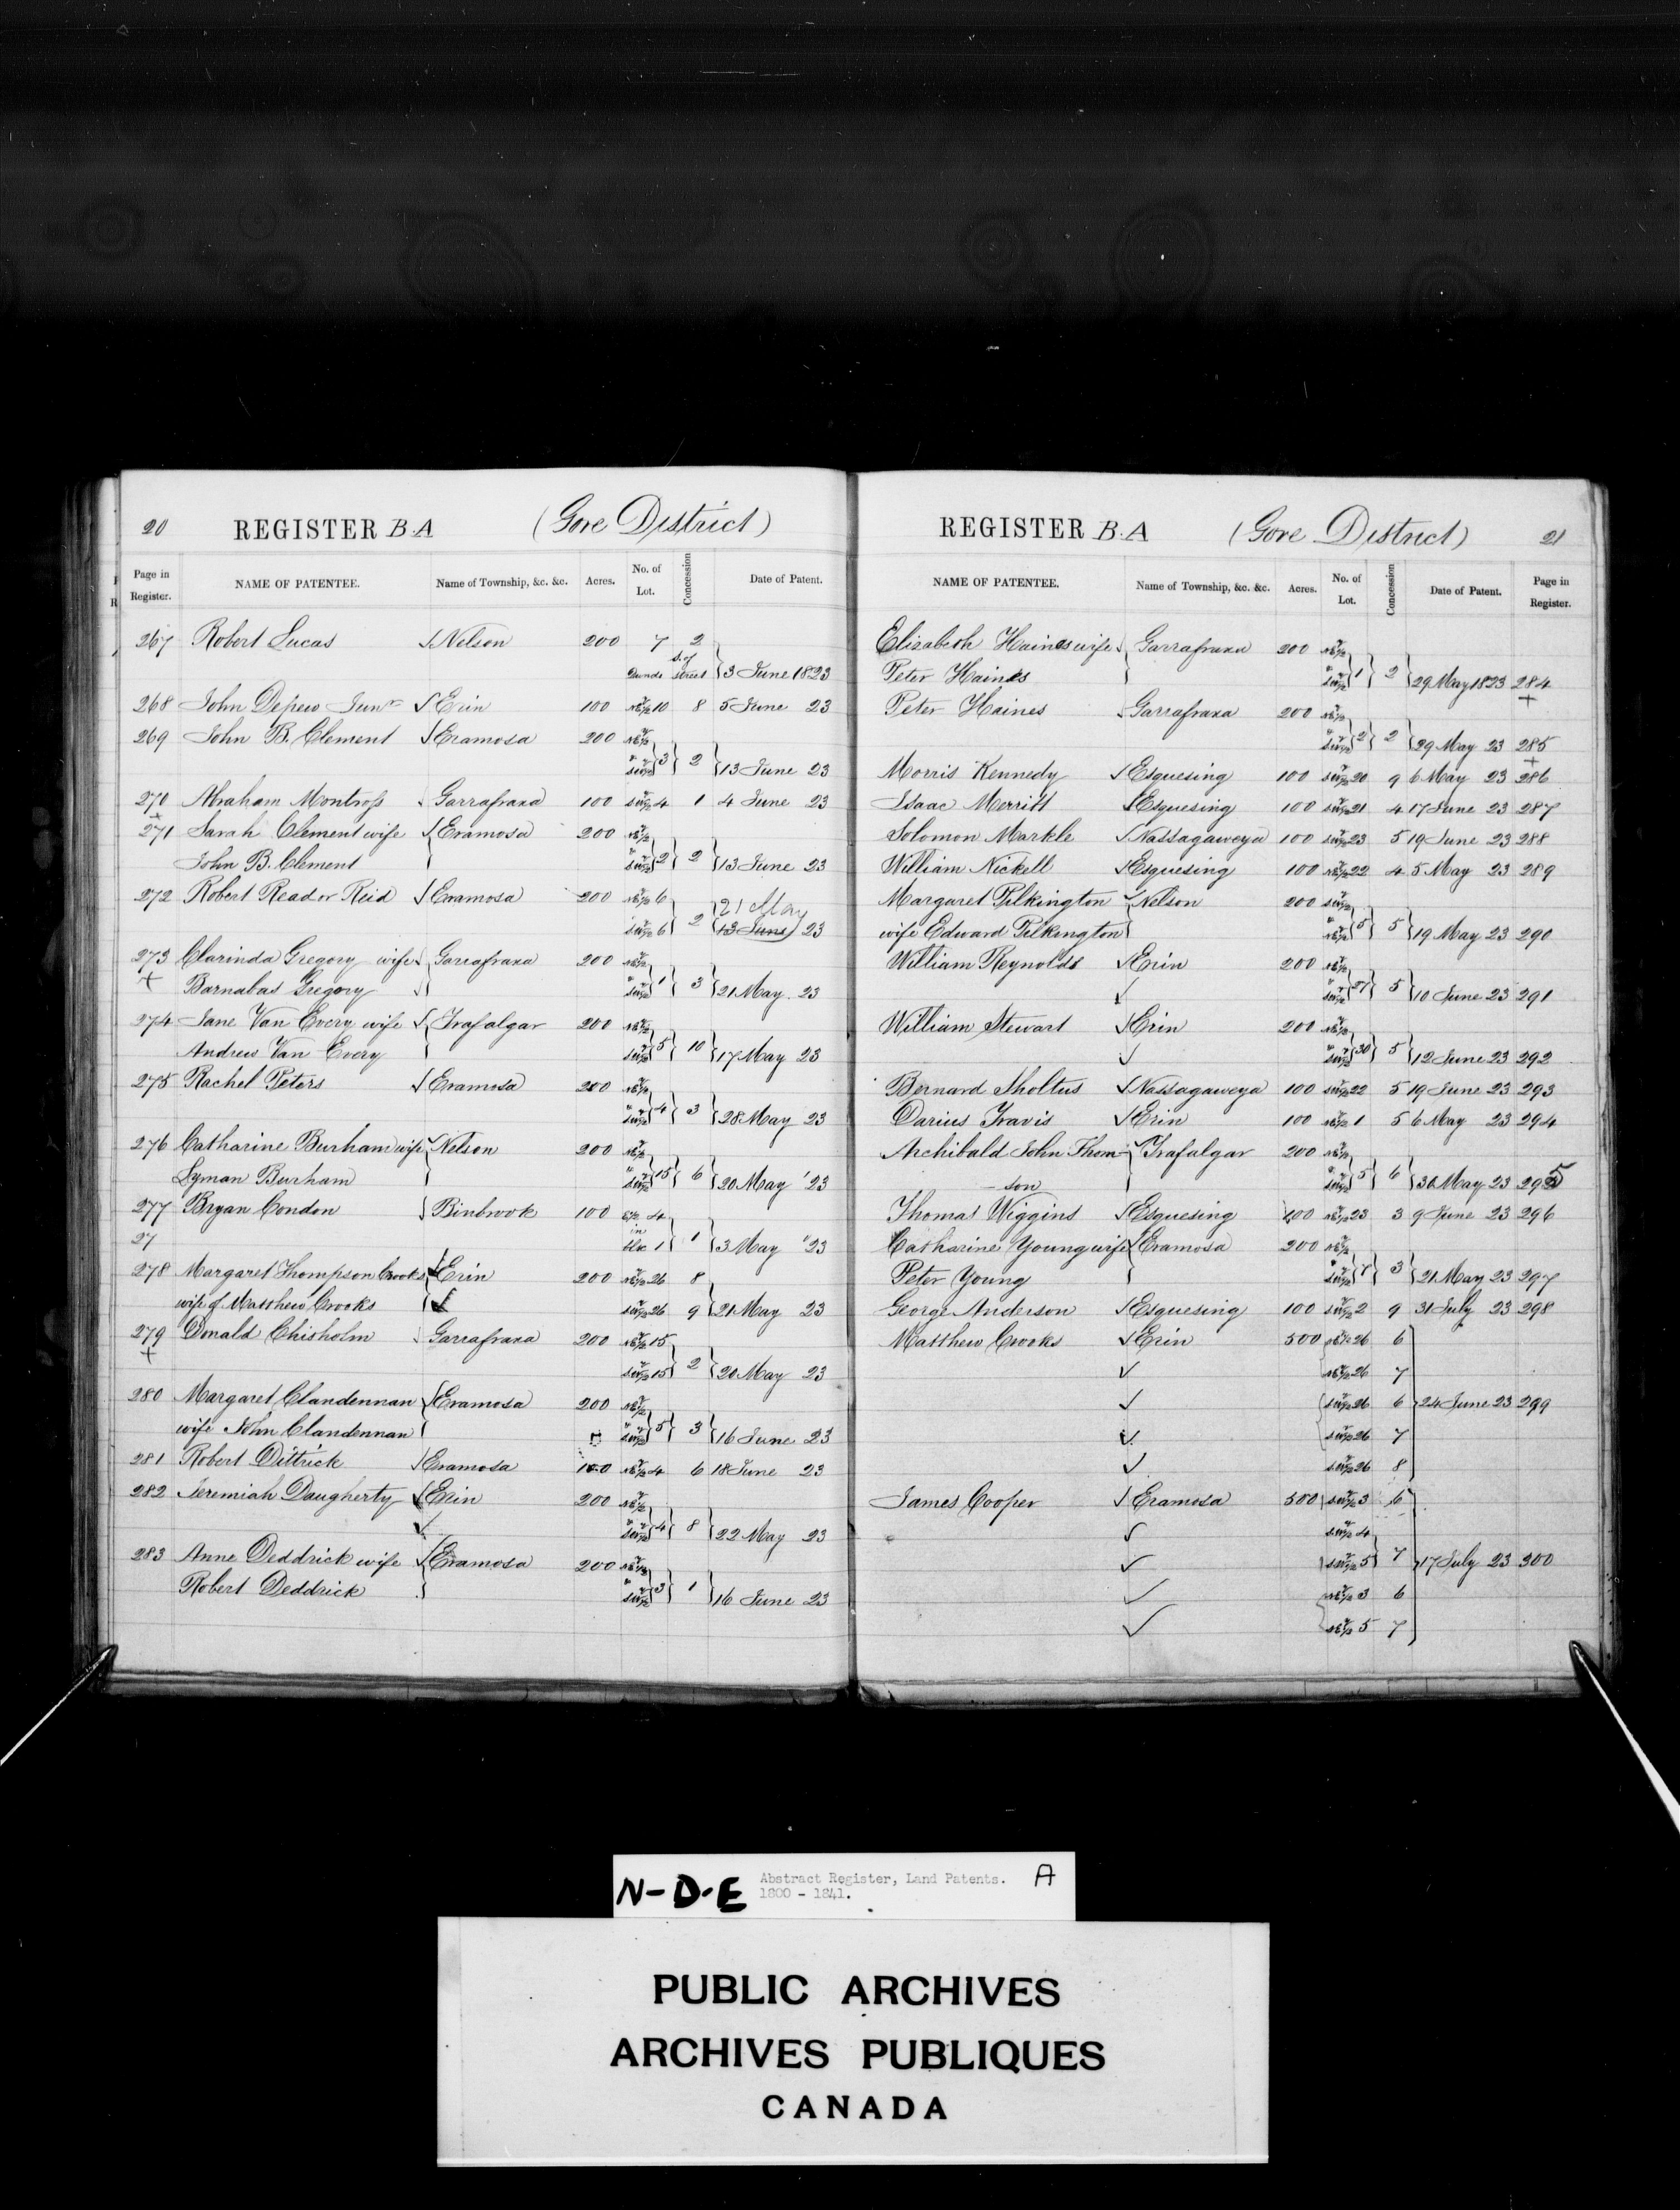 20 REGISTER B.A (Gore District)
Page in Register. NAME OF PATENTEE. Name of Township, &c. &c. Acres. No. of Lot. Concession Date of Patent.
267 Robert Lucas Nelson 200 7 2
S. of Dunds Street 3 June 1823
268 John Depew Junr Erin 100 NE 1/2 10 8 5 June 23
269 John B. Clement Eramosa 200 NE 1/2
" SW 1/2 3 2 13 June 23
270 Abraham Montross Garrafraxa 100 SW 1/2 4 1 4 June 23
+
271 Sarah Clement wife Eramosa 200 NE 1/2
John B. Clement " SW 1/2 2 2 13 June 23
272 Robert Read or Reid Eramosa 200 NE 1/2 6 21 May
SW 1/2 6 2 (13 June) 23
273 Clarinda Gregory wife Garrafraxa 200 NE 1/2
+ Barnabas Gregory " SW 1/2 1 3 21 May 23
274 Jane Van Every wife Trafalgar 200 NE 1/2
Andrew Van Every SW 1/2 5 10 17 May 23
275 Rachel Peters Eramosa 200 NE 1/2
" SW 1/2 4 3 28 May 23
276 Catharine Burham wife Nelson 200 NE 1/2
Lyman Burham " SW 1/2 15 6 20 May 23
277 Bryan Condon Binbrook 100 E 1/2 4
27 in blk 1 1 3 May 23
278 Margaret Thompson Crooks Erin 200 NE 1/2 26 8
wife of Matthew Crooks SW 1/2 26 9 21 May 23
279 Donald Chisholm Garrafraxa 200 NE 1/2 15
+ SW 1/2 15 2 20 May 23
280 Margaret Clandennan Eramosa 200 NE 1/2
wife John Clandennan " SW 1/2 5 3 16 June 23
281 Robert Dittrick Eramosa 100 NE 1/2 4 6 18 June 23
282 Jeremiah Daugherty Erin 200 NE 1/2
" SW 1/2 4 8 22 May 23
283 Anne Deddrick wife Eramosa 200 NE 1/2
Robert Deddrick " SW 1/2 3 1 16 June 23
REGISTER B.A (Gore District) 21
NAME OF PATENTEE. Name of Township, &c. &c. Acres. No. of Lot. Concession Date of Patent. Page in Register.
Elizabeth Haines wife Garrafraxa 200 NE 1/2
Peter Haines " SW 1/2 1 2 29 May 1823 284
+
Peter Haines Garrafraxa 200 NE 1/2
" SW 1/2 2 2 29 May 23 285
+
Morris Kennedy Esquesing 100 SW 1/2 20 9 6 May 23 286
Isaac Merritt Esquesing 100 SW 1/2 21 4 17 June 23 287
Solomon Markle Nassagaweya 100 SW 1/2 23 5 19 June 23 288
William Nickell Esquesing 100 NE 1/2 22 4 5 May 23 289
Margaret Pilkington Nelson 200 SW 1/2
wife Edward Pilkington " NE 1/2 5 5 19 May 23 290
William Reynolds Erin 200 NE 1/2
" SW 1/2 27 5 10 June 23 291
William Stewart Erin 200 NE 1/2
" SW 1/2 30 5 12 June 23 292
Bernard Sholtus Nassagaweya 100 SW 1/2 22 5 19 June 23 293
Darius Travis Erin 100 NE 1/2 1 5 6 May 23 294
Archibald John Thom- Trafalgar 200 NE 1/2
-son " SW 1/2 5 6 30 May 23 295
Thomas Wiggins Esquesing 100 NE 1/2 23 3 9 June 23 296
Catharine Young wife Eramosa 200 NE 1/2
Peter Young " SW 1/2 7 3 21 May 23 297
George Anderson Esquesing 100 SW 1/2 2 9 31 July 23 298
Matthew Crooks Erin 500 NE 1/2 26 6
NE 1/2 26 7
SW 1/2 26 6 24 June 23 299
SW 1/2 26 7
SW 1/2 26 8
James Cooper Eramosa 500 SW 1/2 3 6
SW 1/2 4
SW 1/2 5 7 17 July 23 300
NE 1/2 3 6
NE 1/2 5 7
N-D-E Abstract Register, Land Patents. A
1800 - 1841.
PUBLIC ARCHIVES
ARCHIVES PUBLIQUES
CANADA